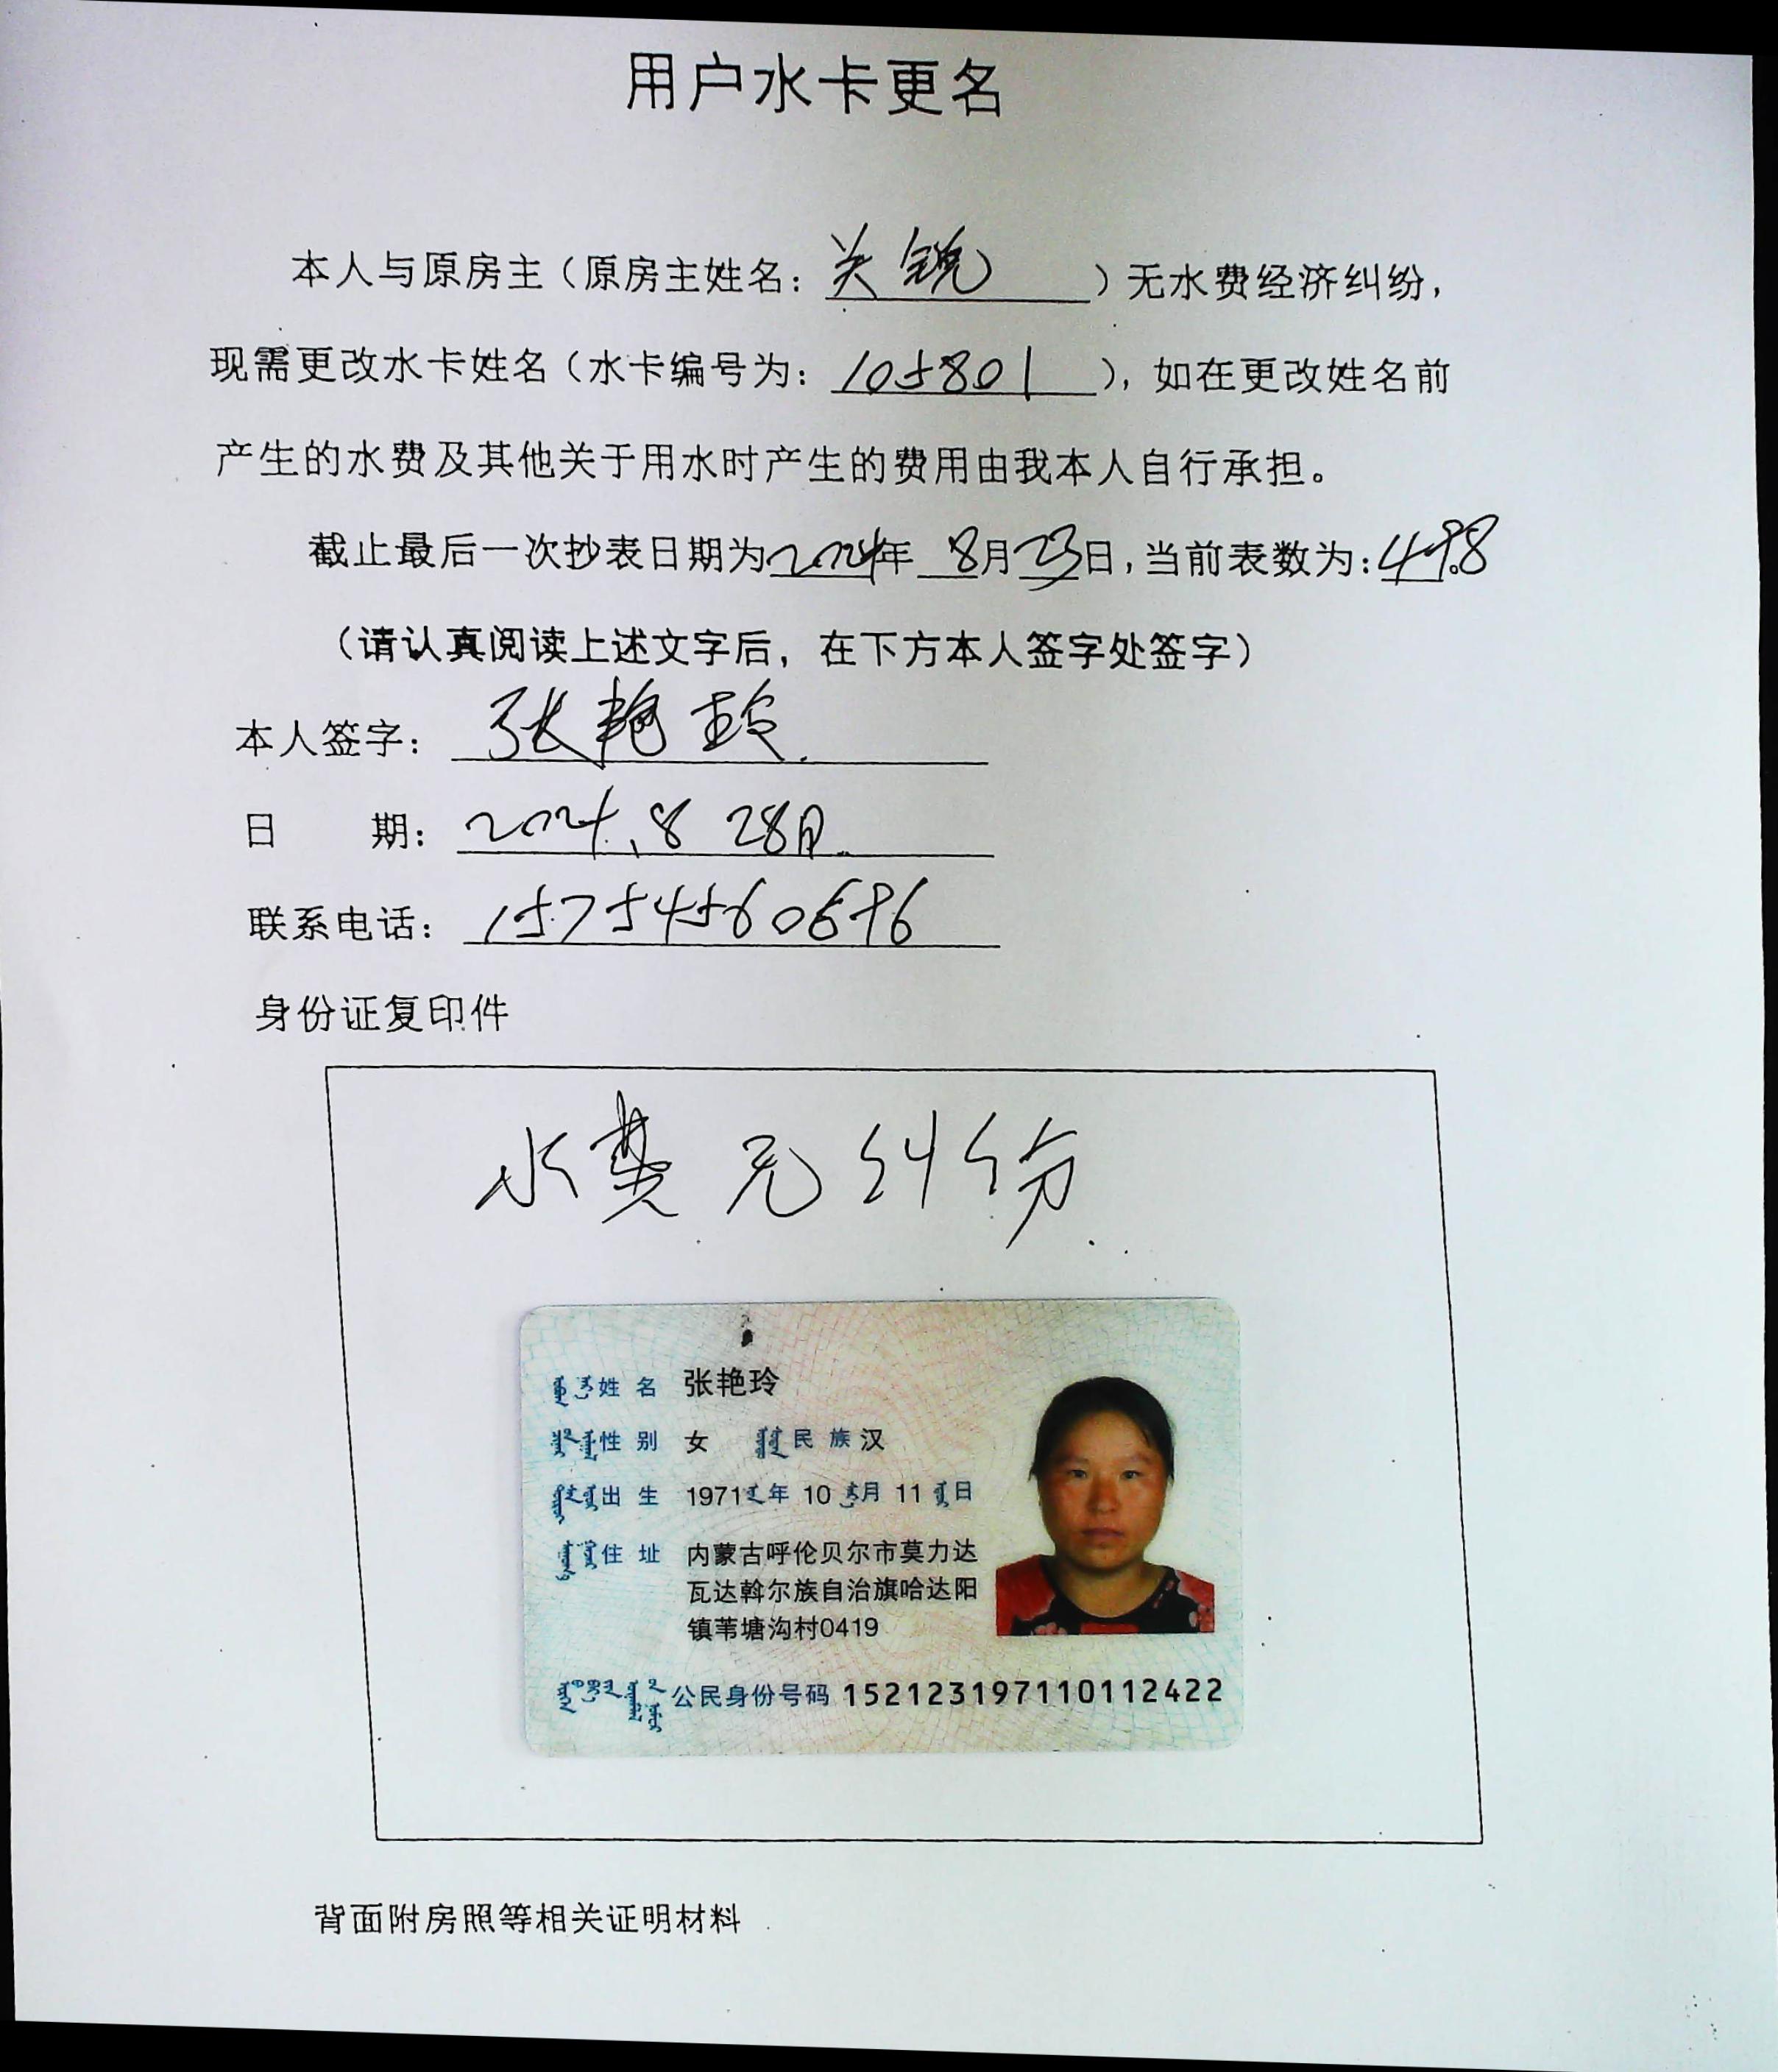 用户水卡更名
本人与原房主（原房主姓名：关锐）无水费经济纠纷，
现需更改水卡姓名（水卡编号为：105801），如在更改姓名前
产生的水费及其他关于用水时产生的费用由我本人自行承担。
截止最后一次抄表日期为2024年 8月23日，当前表数为：498
（请认真阅读上述文字后，在下方本人签字处签字）
本人签字：张艳玲
日 期：2024.8 28日
联系电话：15754560696
身份证复印件
水费无纠纷
姓 名 张艳玲
性 别 女 民 族 汉
出 生 1971年 10月 11日
住 址 内蒙古呼伦贝尔市莫力达
瓦达斡尔族自治旗哈达阳
镇苇塘沟村0419
公民身份号码 152123197110112422
背面附房照等相关证明材料